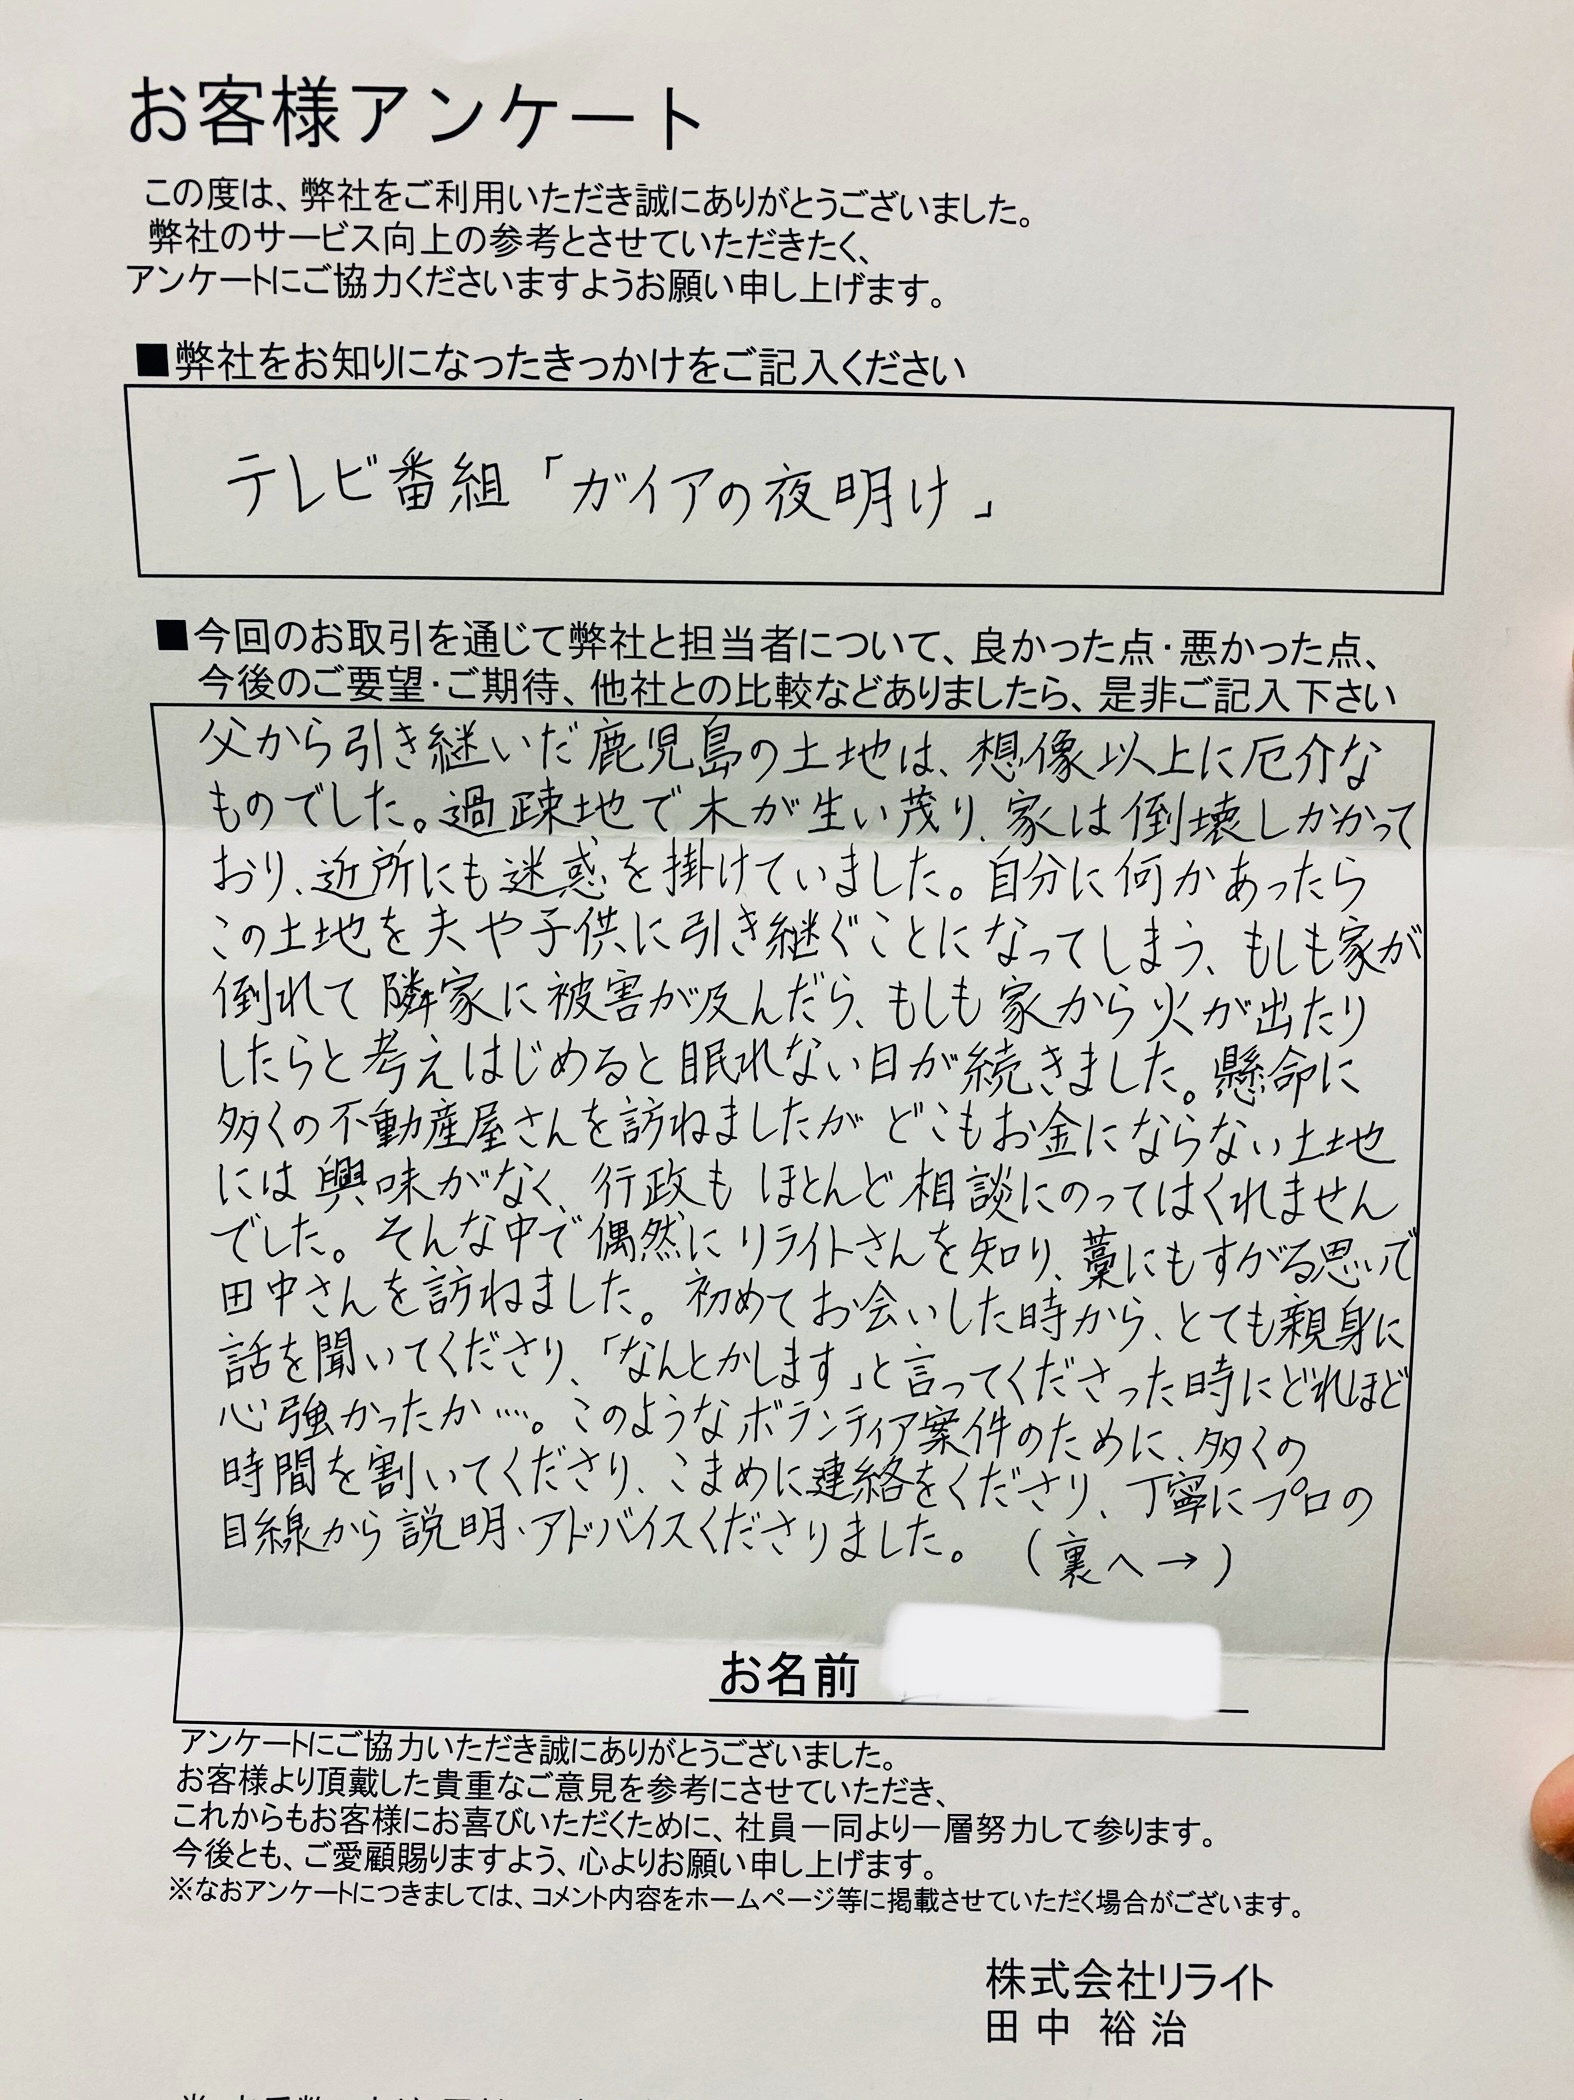 お客様アンケート
この度は、弊社をご利用いただき誠にありがとうございました。
弊社のサービス向上の参考とさせていただきたく、
アンケートにご協力くださいますようお願い申し上げます。
■弊社をお知りになったきっかけをご記入ください
テレビ番組「ガイアの夜明け」
■今回のお取引を通じて弊社と担当者について、良かった点・悪かった点、
今後のご要望・ご期待、他社との比較などありましたら、是非ご記入下さい
父から引き継いだ鹿児島の土地は、想像以上に厄介な
ものでした。過疎地で木が生い茂り、家は倒壊しかかって
おり、近所にも迷惑を掛けていました。自分に何かあったら
この土地を夫や子供に引き継ぐことになってしまう、もしも家が
倒れて隣家に被害が及んだら、もしも家から火が出たり
したらと考えはじめると眠れない日が続きました。懸命に
多くの不動産屋さんを訪ねましたが どこもお金にならない土地
には興味がなく、行政も ほとんど相談にのってはくれません
でした。そんな中で偶然にリライトさんを知り、藁にもすがる思いで
田中さんを訪ねました。初めてお会いした時から、とても親身に
話を聞いてくださり、「なんとかします」と言ってくださった時にどれほど
心強かったか….。このようなボランティア案件のために、多くの
時間を割いてくださり、こまめに連絡をくださり、丁寧にプロの
目線から説明・アドバイスくださりました。 (裏へ→)
お名前
アンケートにご協力いただき誠にありがとうございました。
お客様より頂戴した貴重なご意見を参考にさせていただき、
これからもお客様にお喜びいただくために、社員一同より一層努力して参ります。
今後とも、ご愛顧賜りますよう、心よりお願い申し上げます。
※なおアンケートにつきましては、コメント内容をホームページ等に掲載させていただく場合がございます。
株式会社リライト
田中 裕治